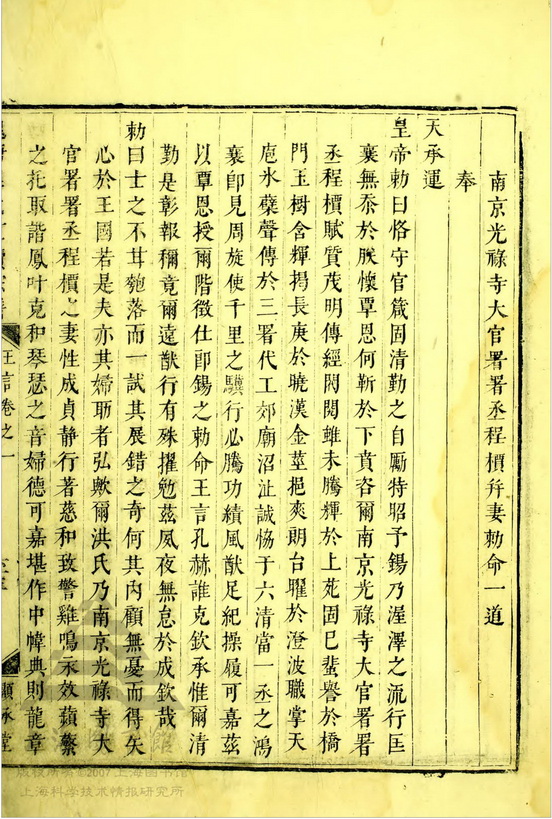 南京光祿寺大官署署丞程檟并妻勅命一道
奉
天承運
皇帝勅曰恪守官箴固清勤之自勵特昭予錫乃渥澤之流行匡
襄無忝於朕懷覃恩何靳於下賁咨爾南京光祿寺大官署署
丞程檟賦質茂明傳經閥閱雖未騰輝於上苑固已蜚譽於橋
門玉樹含輝揭長庚於曉漢金莖挹爽朗台曜於澄波職掌天
庖氷櫱聲傳於三署代工郊廟沼沚誠恊于六清當一丞之鴻
襄卽見周旋使千里之驥行必騰功績風猷足紀操履可嘉茲
以覃恩授爾階徵仕郎錫之勅命王言孔赫誰克欽承惟爾清
勤是彰報稱竟爾遠猷行有殊擢勉茲夙夜無怠於成欽哉
勅曰士之不甘匏落而一試其展錯之奇何其內顧無憂而得矢
心於王國若是夫亦其婦助者弘歟爾洪氏乃南京光祿寺大
官署署丞程檟之妻性成貞静行著慈和致警雞鳴永效蘋蘩
之托取諧鳳叶克和琴瑟之音婦德可嘉堪作中幃典則龍章
王言卷之一
顯承堂
版权所有©2007上海图书馆
上海科学技术情报研究所